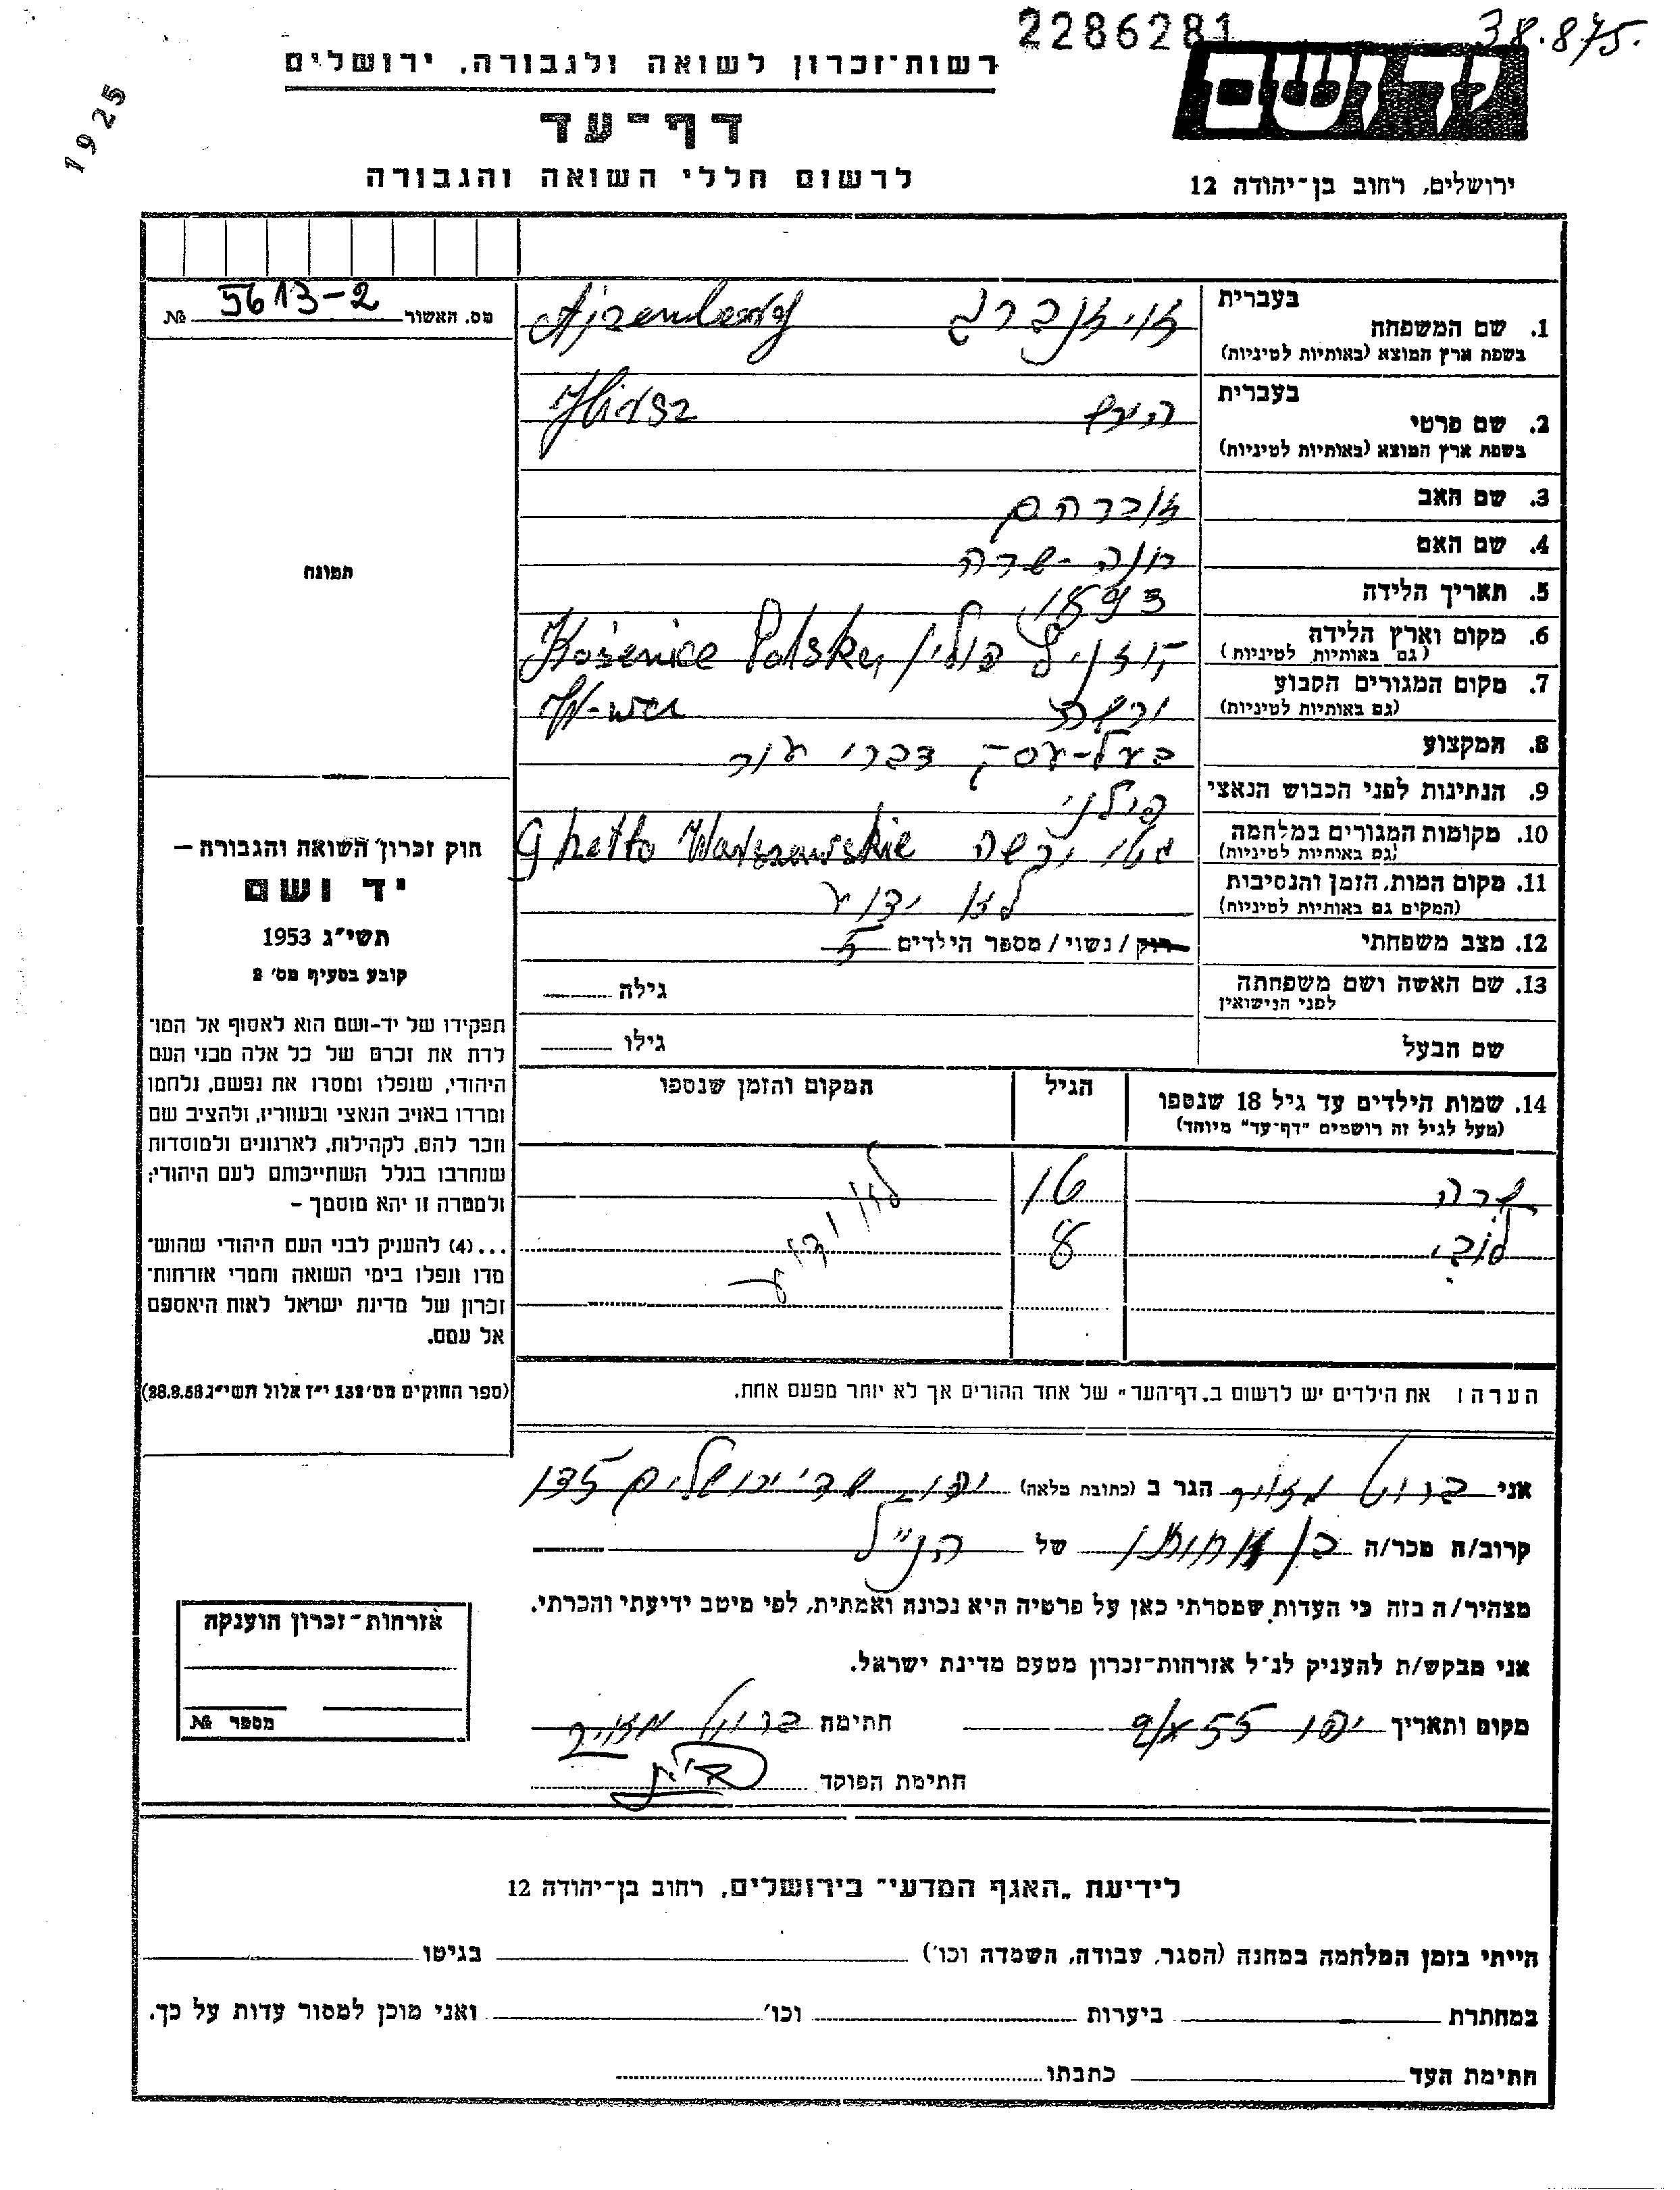 2286281
38.875.
1925
רשות־זכרון לשואה ולגבורה, ירושלים
יד ושם
דף־עד
לרשום חללי השואה והגבורה
ירושלים, רחוב בן־יהודה 12
מס. האשור № 5613-2
תמונה
חוק זכרון השואה והגבורה —
יד ושם
תשי"ג 1953
קובע בסעיף מס' 2
תפקידו של יד-ושם הוא לאסוף אל המו־
לדת את זכרם של כל אלה מבני העם
היהודי, שנפלו ומסרו את נפשם, נלחמו
ומרדו באויב הנאצי ובעוזריו, ולהציב שם
וזכר להם, לקהילות, לארגונים ולמוסדות
שנחרבו בגלל השתייכותם לעם היהודי;
ולמטרה זו יהא מוסמך –
...(4) להעניק לבני העם היהודי שהוש־
מדו ונפלו בימי השואה והמרי אזרחות־
זכרון של מדינת ישראל לאות היאספם
אל עמם.
(ספר החוקים מס' 132 י"ז אלול תשי"ג 28.8.53)
בעברית
1. שם המשפחה אייזנברג Ajzenberg
בשפת ארץ המוצא (באותיות לטיניות)
בעברית
2. שם פרטי הירש Hirsz
בשפת ארץ המוצא (באותיות לטיניות)
3. שם האב אברהם
4. שם האם חנה-שרה
5. תאריך הלידה 1893
6. מקום וארץ הלידה קוזניץ פולין / Kożenice Polska
(גם באותיות לטיניות)
7. מקום המגורים הקבוע ורשה W-wa
(גם באותיות לטיניות)
8. המקצוע בעל-עסק דברי עור
9. הנתינות לפני הכבוש הנאצי פולני
10. מקומות המגורים במלחמה גטו ורשה Ghetto Warszawskie
(גם באותיות לטיניות)
11. מקום המות, הזמן והנסיבות לא ידוע
(המקום גם באותיות לטיניות)
12. מצב משפחתי רוק / נשוי / מספר הילדים 5
13. שם האשה ושם משפחתה גילה
לפני הנישואין
שם הבעל גילו
14. שמות הילדים עד גיל 18 שנספו הגיל המקום והזמן שנספו
(מעל לגיל זה רושמים "דף־עד" מיוחד)
שרה 16 לא ידוע
8
הערה: את הילדים יש לרשום ב„דף־העד" של אחד ההורים אך לא יותר מפעם אחת.
אני ברוט מאיר הגר ב (כתובת מלאה) יפו שד' ירושלים
קרוב/ה מכר/ה בן אחותו של הנ"ל
מצהיר/ה בזה כי העדות שמסרתי כאן על פרטיה היא נכונה ואמתית, לפי מיטב ידיעתי והכרתי.
אני מבקש/ת להעניק לנ"ל אזרחות־זכרון מטעם מדינת ישראל.
מקום ותאריך יפו חתימה ברוט מאיר
חתימת הפוקד
אזרחות־זכרון הוענקה
מספר №
לידיעת „האגף המדעי" בירושלים, רחוב בן־יהודה 12
הייתי בזמן המלחמה במחנה (הסגר, עבודה, השמדה וכו') בגיטו
במחתרת ביערות וכו' ואני מוכן למסור עדות על כך.
חתימת העד כתבתו